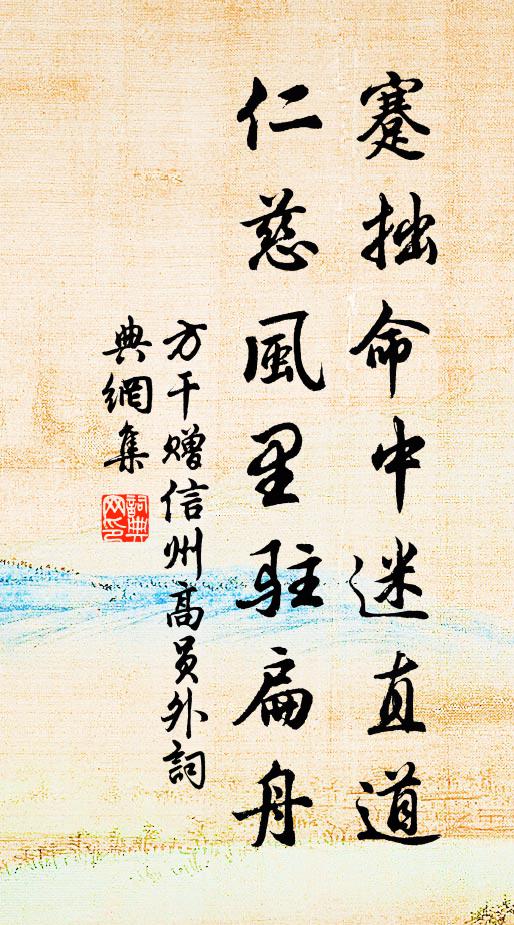 蹇拙命中迷直道
仁慈風里駐扁舟
方干赠信州高员外詞
典網集
詞典網印